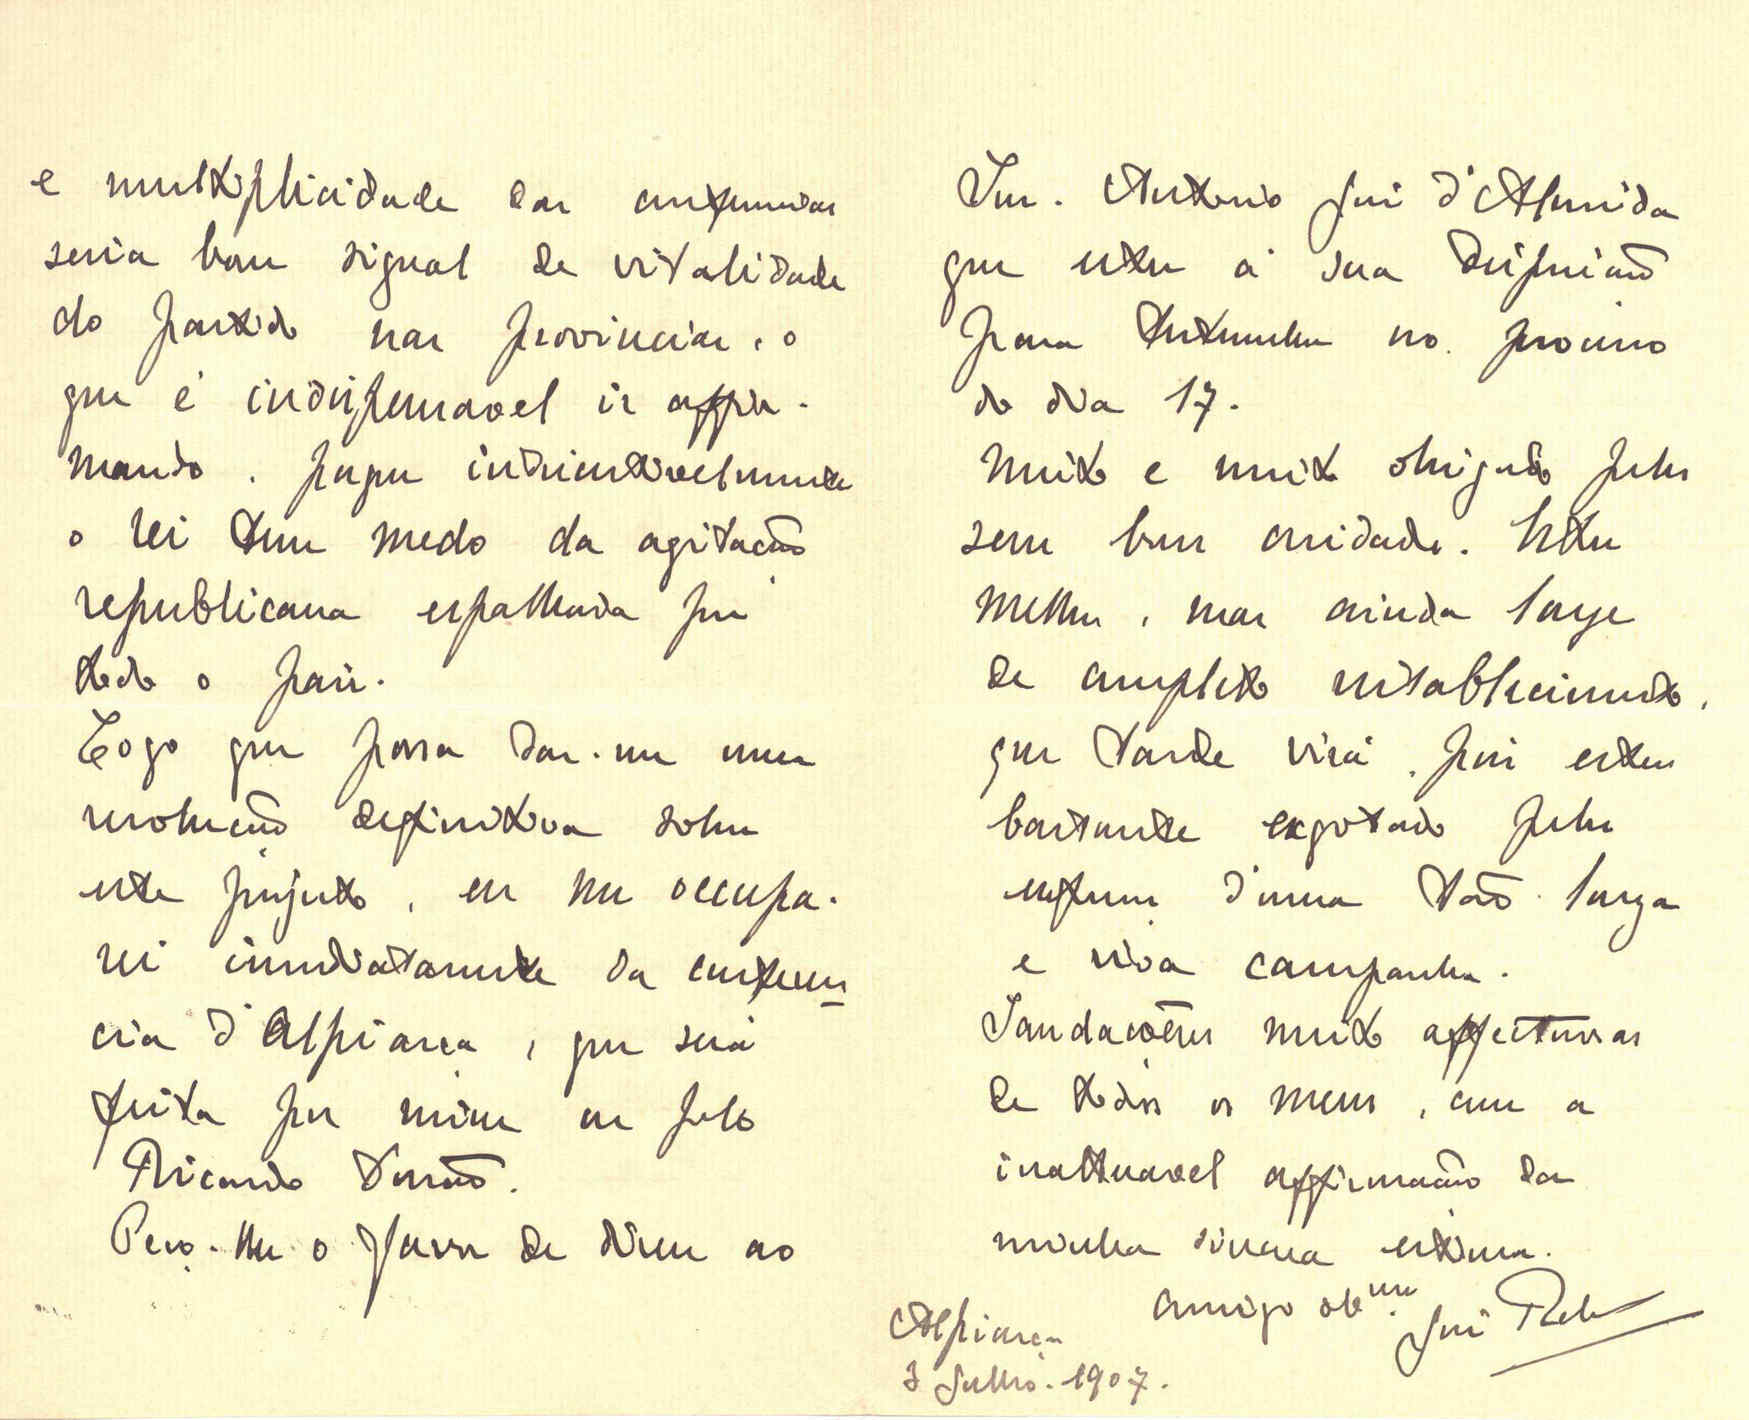 e multiplicidade das conferencias
seria bom signal de vitalidade
do partido nas provincias, o
que é indispensavel ir affir-
mando, porque indiscutivelmente
o rei tem medo da agitação
republicana espalhada por
todo o paiz.
Logo que possa dar-me uma
resolução definitiva sobre
este projecto, eu me occupa-
rei immediatamente da conferen
cia d'Alpiarça, que será
feita por mim ou pelo
Ricardo Durão.
Peço-lhe o favor de dizer ao
Snr. Antonio José d'Almeida
que estou á sua disposição
para testemunha no processo
do dia 17.
Muito e muito obrigado pelos
seus bons cuidados. Estou
melhor, mas ainda longe
de completo restabelecimento,
que tarde virá, pois estou
bastante exgotado pelos
esforços d'uma tão larga
e viva campanha.
Saudações muito affectuosas
de todos os meus, com a
inalteravel affirmação da
minha sincera estima.
Amigo obr.mo José Relvas
Alpiarça
3 Julho. 1907.